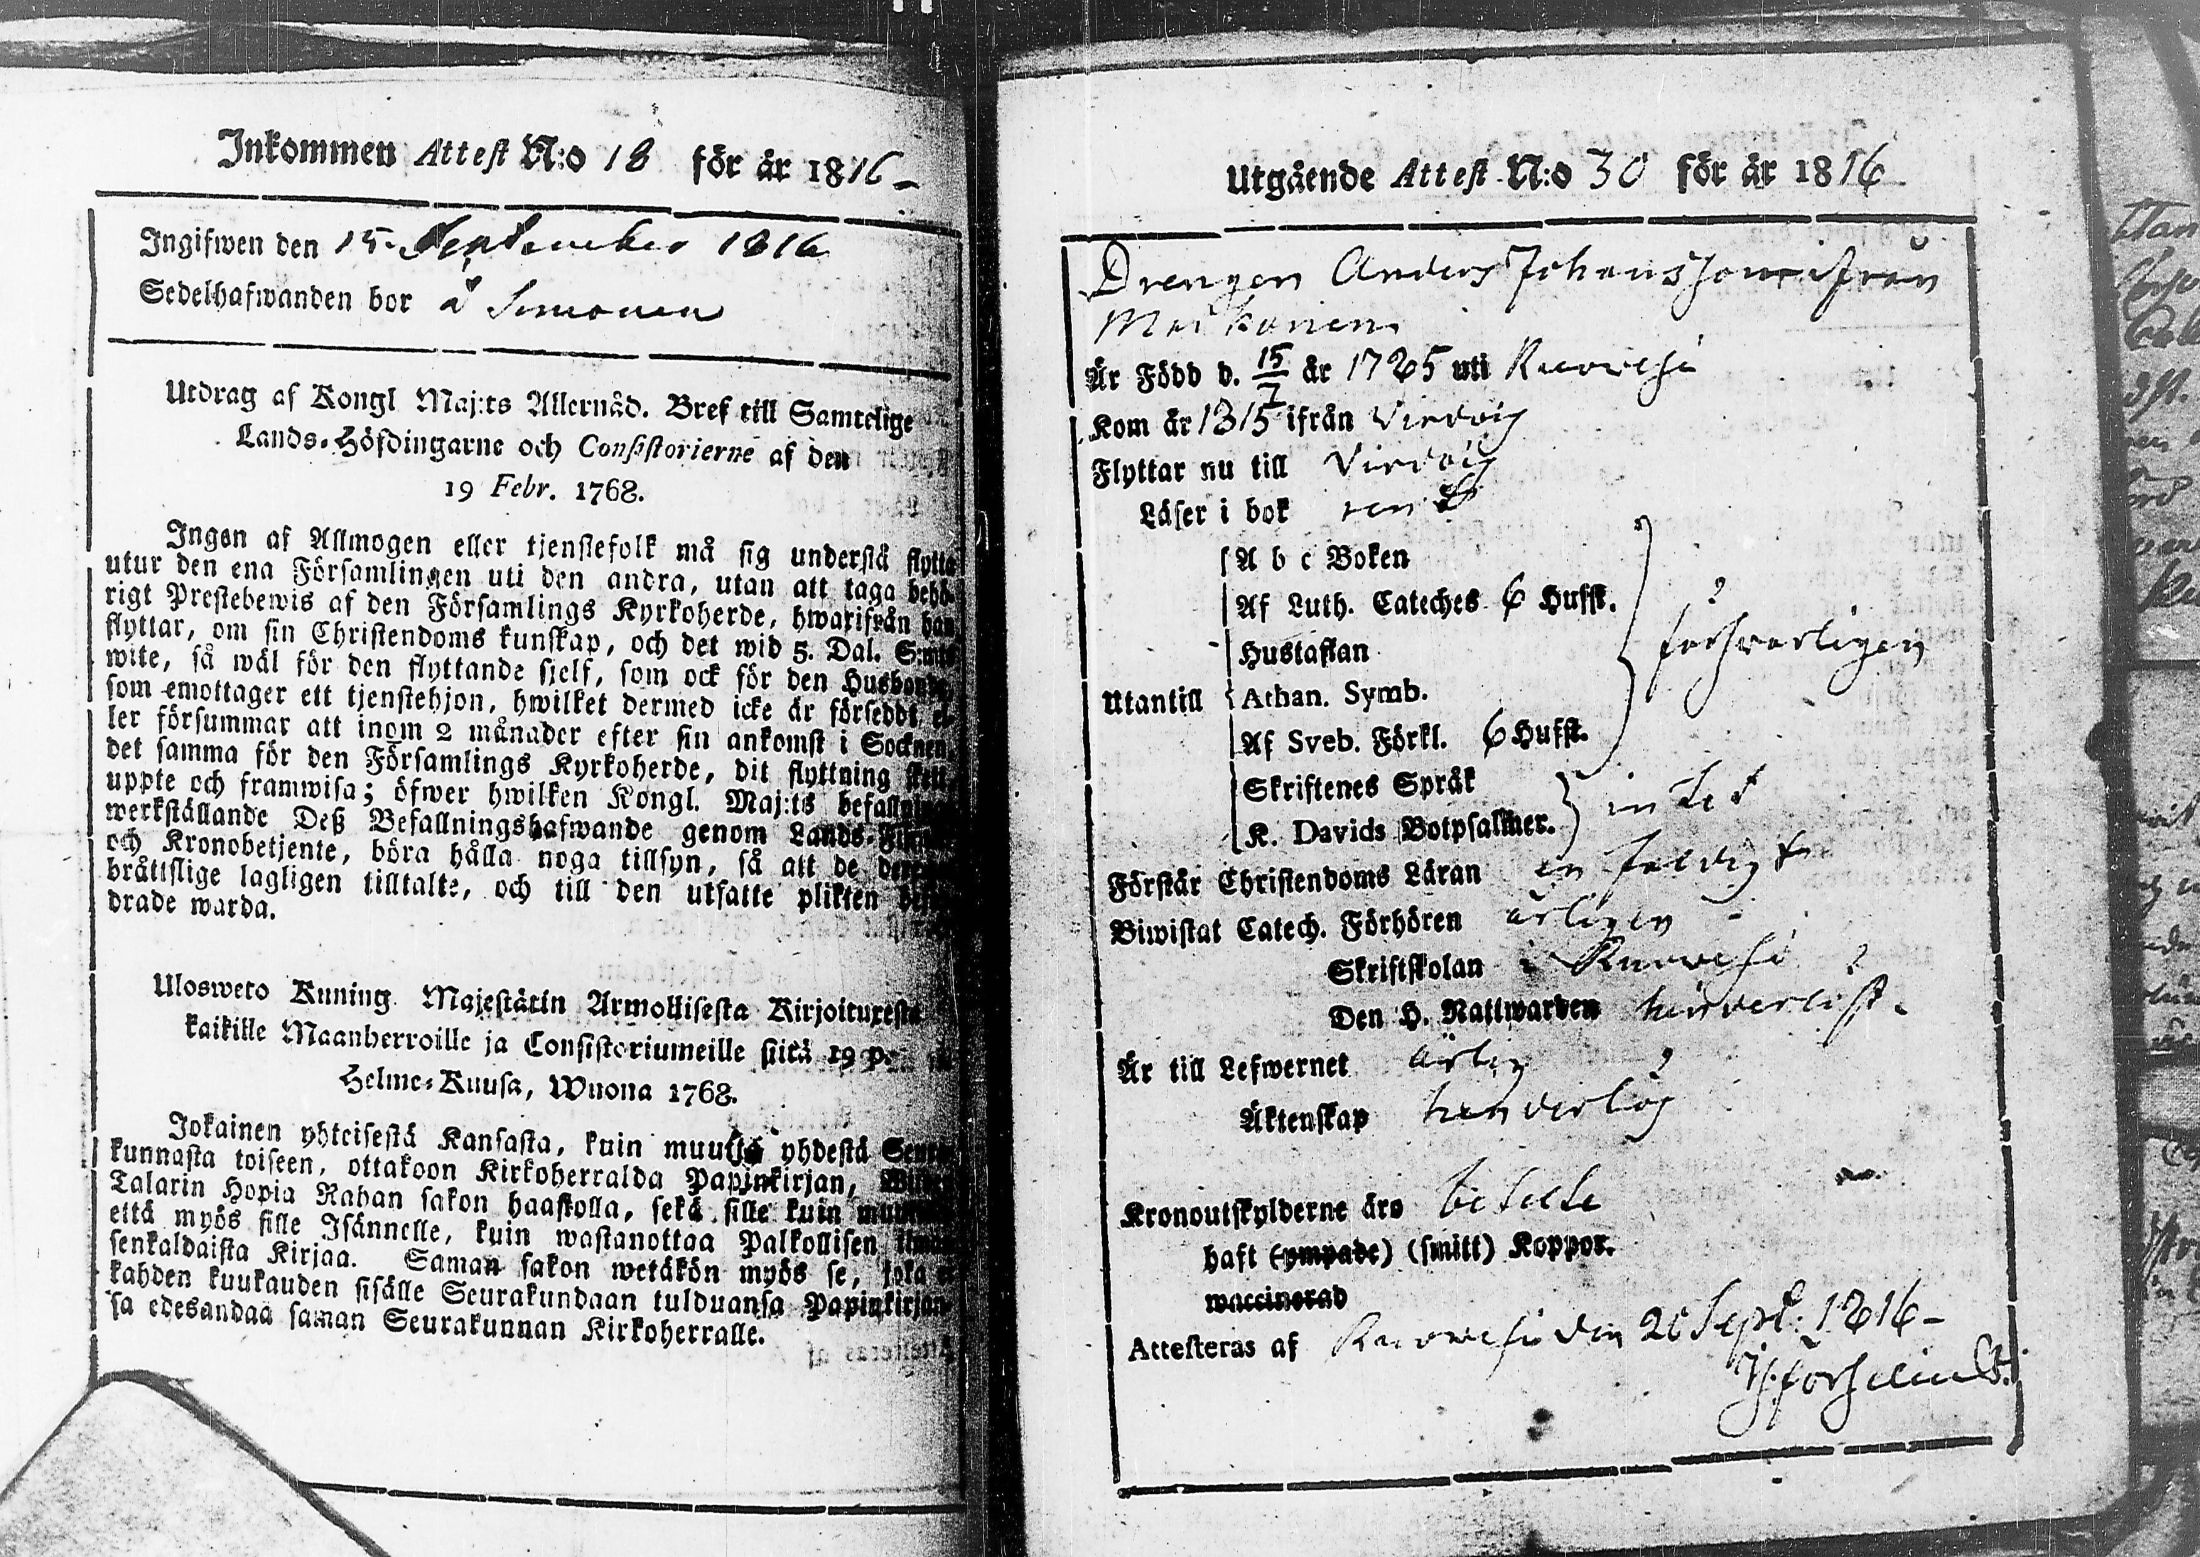 Inkommen Attest N:o 18 för år 1816
Ingifwen den 15 September 1816
Sedelhafwanden bor å Simonen
Utdrag af Kongl Maj:ts Allernåd. Bref till Samtelige
Lands-Höfdingarne och Consistorierne af den
19 Febr. 1768.
Ingen af Allmogen eller tjenstefolk må sig understå flytta
utur den ena Församlingen uti den andra, utan att taga behö-
rigt Prestebewis af den Församlings Kyrkoherde, hwarifrån han
flyttar, om sin Christendoms kunskap, och det wid 5. Dal. S:mts
wite, så wäl för den flyttande sjelf, som ock för den Husbonde,
som emottager ett tjenstehjon, hwilket dermed icke är försedd, el-
ler försummar att inom 2 månader efter sin ankomst i Socknen,
det samma för den Församlings Kyrkoherde, dit flyttning skett,
uppte och framwisa; öfwer hwilken Kongl. Maj:ts befallning
werkställande Deß Befallningshafwande genom Lands-
och Kronobetjente, böra hålla noga tillsyn, så att de
bråttslige lagligen tilltalte, och till den utsatte plikten
drade warda.
Ulosweto Kuning. Majestätin Armollisesta Kirjoituxesta
kaikille Maanherroille ja Consistoriumeille siitä 19 p.
Helme-Kuusa, Wuona 1768.
Jokainen yhteisestä Kansasta, kuin muutta yhdestä Seura-
kunnasta toiseen, ottakoon Kirkoherralda Papinkirjan, Wiiden
Talarin Hopia Rahan sakon haastolla, sekä sille kuin muuttaa
että myös sille Isännelle, kuin wastanottaa Palkollisen ilman
senkaldaista Kirjaa. Saman sakon wetäkön myös se, joka ei
kahden kuukauden sisälle Seurakundaan tulduansa Papinkirjan-
sa edesandaa saman Seurakunnan Kirkoherralle.
Utgående Attest N:o 30 för år 1816
Drengen Anders Johansson ifrån
Är Född d. 15/7 år 1785 uti Ruovesi
Kom år 1815 ifrån Virdois
Flyttar nu till Virdois
Läser i bok rent
A b c Boken
Af Luth. Cateches 6 Hufst.
Hustaflan försvarligen
Utantill Athan. Symb.
Af Sveb. Förkl. 6 Hufst.
Skriftenes Språk
K. Davids Botpsalmer. intet
Förstår Christendoms Läran enfaldigt
Biwistat Catech. Förhören årligen
Skriftskolan i Ruovesi
Den H. Nattwarden hinderlöst
Är till Lefwernet ärlig
Äktenskap hinderlös
Kronoutskylderne äro betalte
haft (ympade) (smitt) Koppor.
waccinerad
Attesteras af Ruovesi den 20 Sept. 1816